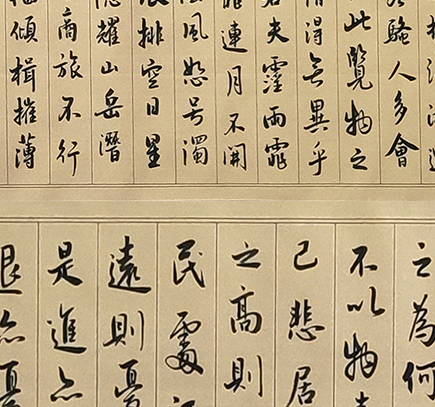 騷人多會
此覽物之
得無異乎
夫霪雨霏
連月不開
風怒号濁
排空日星
耀山岳潛
商旅不行
傾楫摧薄
之為何
不以物
己悲居
之高則
民處
遠則憂
是進亦
退亦憂